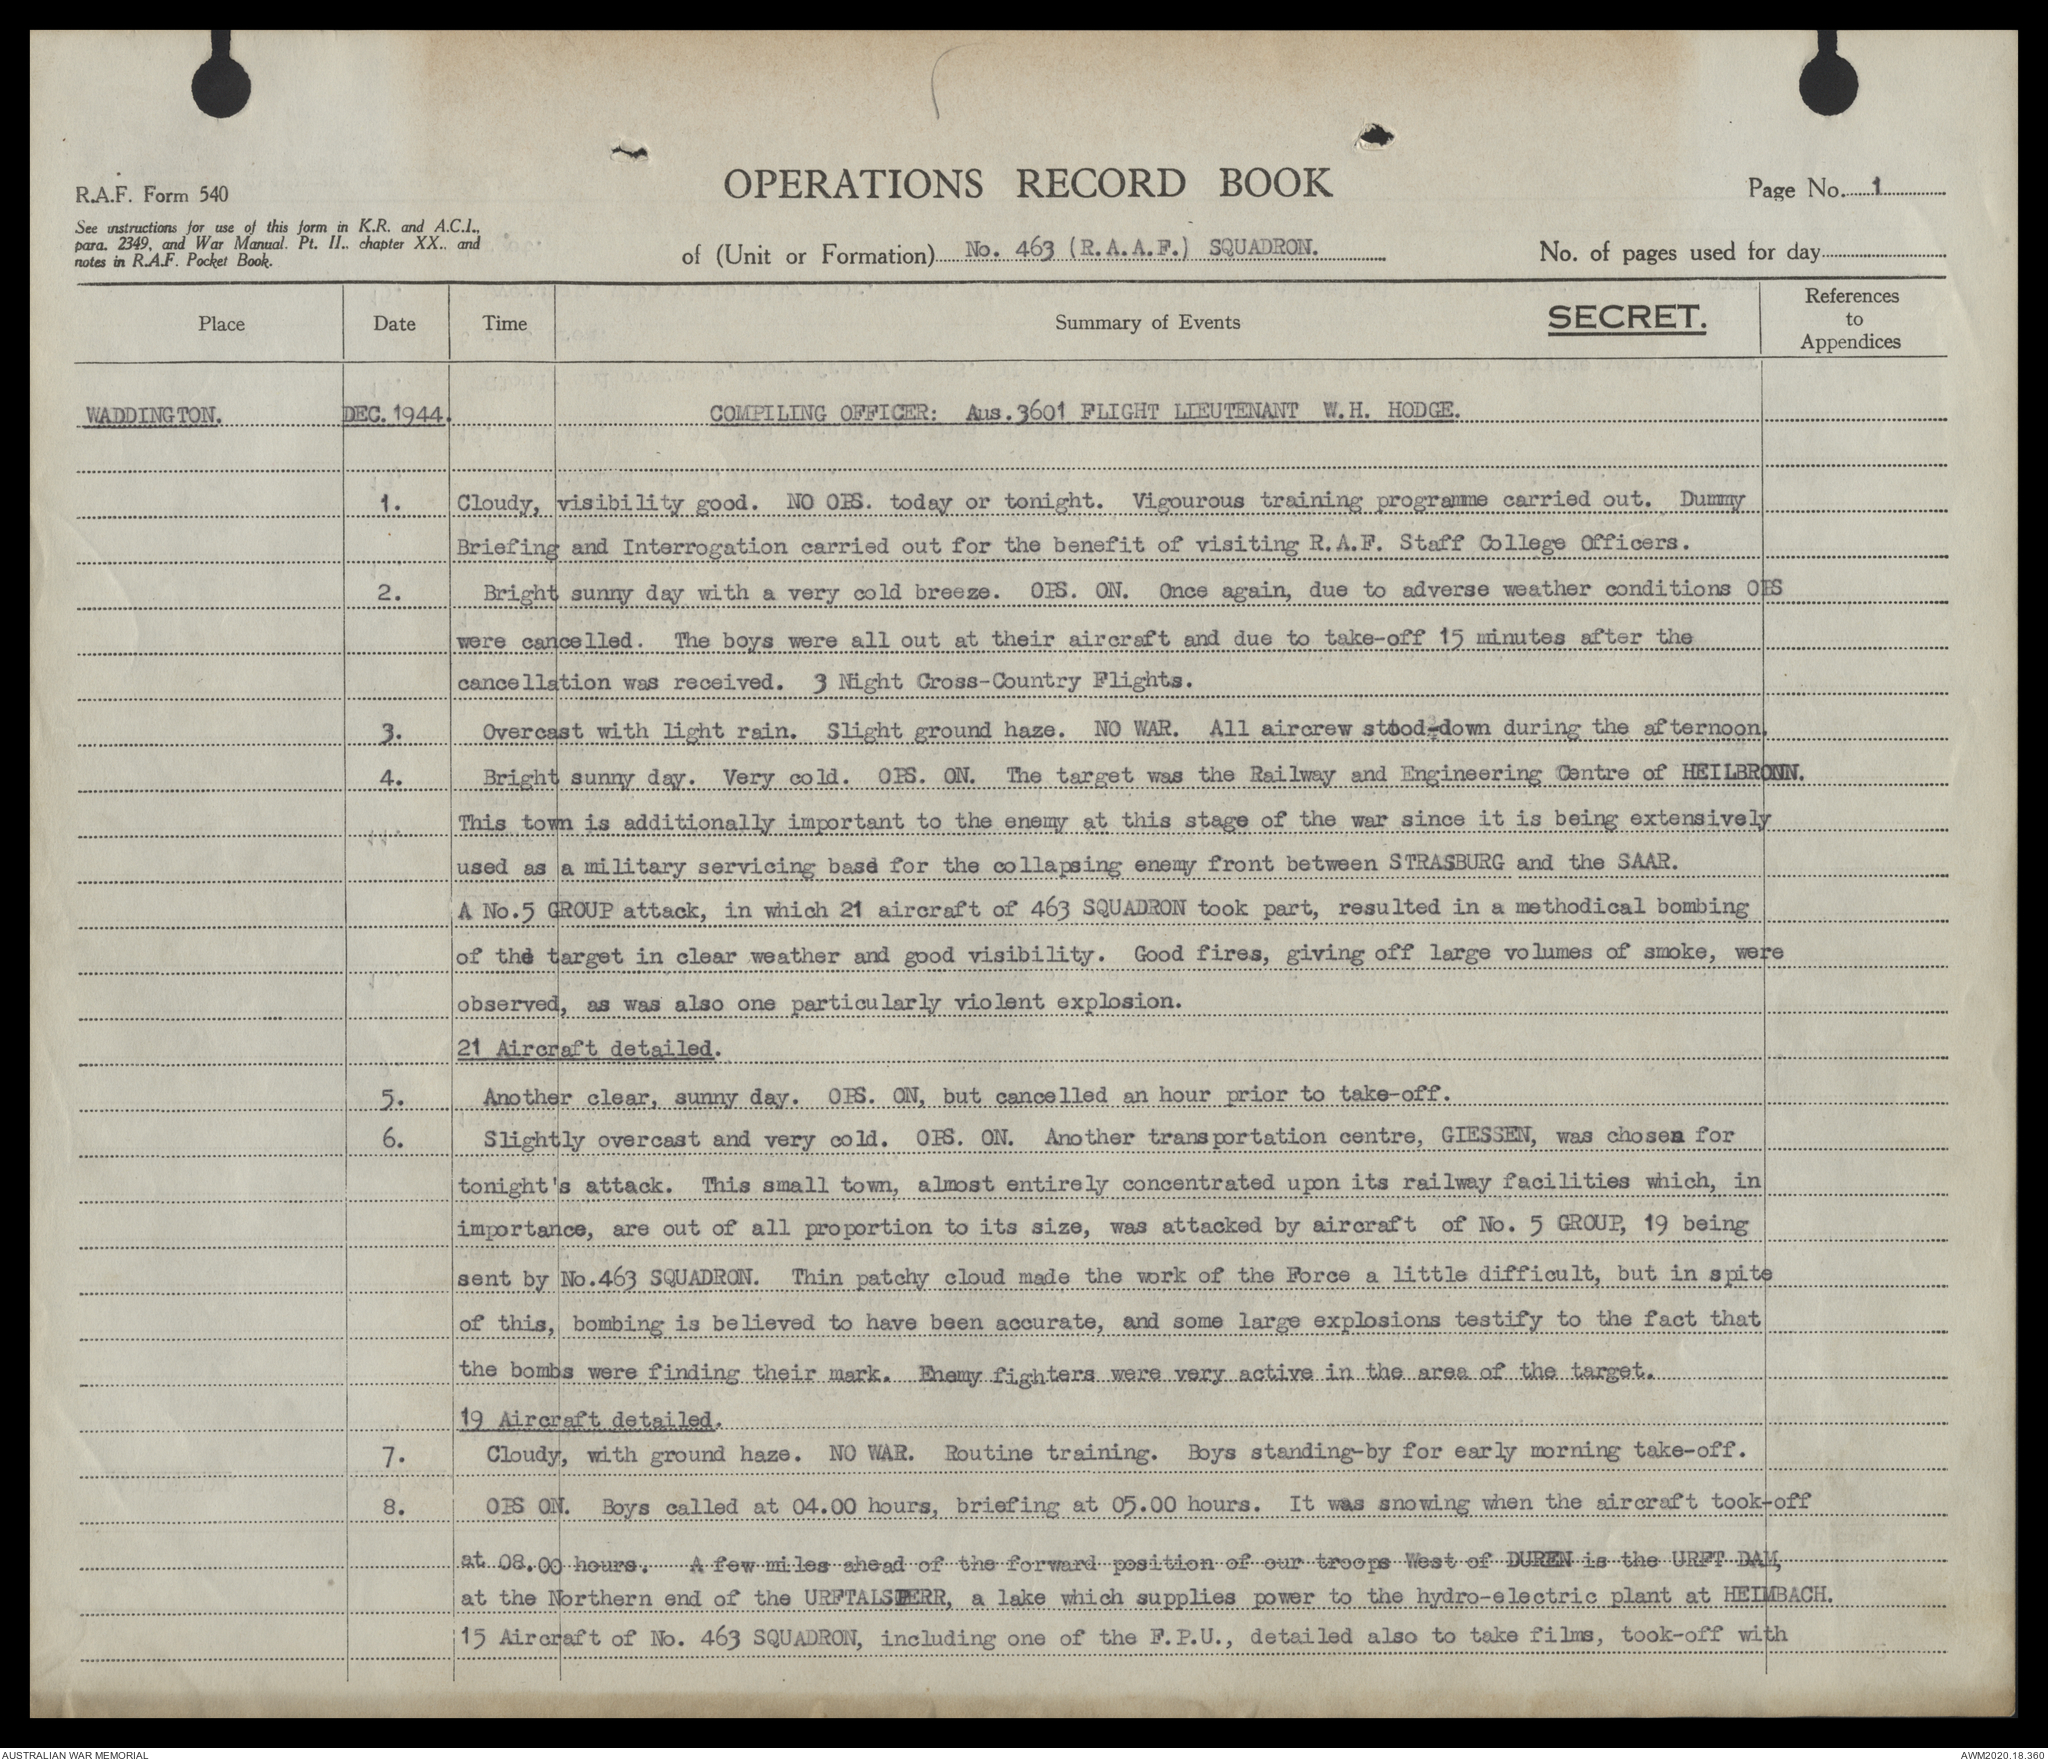 OPERATIONS RECORD BOOK
R.A.F. Form 540
Page No. 1
See instructions for use of this form in K.R. and A.C.I.,
para. 2349, and War Manual. Pt. II., chapter XX., and
notes in R.A.F. Pocket Book.
of (Unit or Formation) No. 463 (R.A.A.F.) SQUADRON.
No. of pages used for day
Place Date Time Summary of Events SECRET. References to Appendices
WADDINGTON. DEC. 1944. COMPILING OFFICER: Aus.3601 FLIGHT LIEUTENANT W.H. HODGE.
1. Cloudy, visibility good. NO OPS. today or tonight. Vigourous training programme carried out. Dummy
Briefing and Interrogation carried out for the benefit of visiting R.A.F. Staff College Officers.
2. Bright sunny day with a very cold breeze. OPS. ON. Once again, due to adverse weather conditions OPS
were cancelled. The boys were all out at their aircraft and due to take-off 15 minutes after the
cancellation was received. 3 Night Cross-Country Flights.
3. Overcast with light rain. Slight ground haze. NO WAR. All aircrew stood-down during the afternoon.
4. Bright sunny day. Very cold. OPS. ON. The target was the Railway and Engineering Centre of HEILBRONN.
This town is additionally important to the enemy at this stage of the war since it is being extensively
used as a military servicing base for the collapsing enemy front between STRASBURG and the SAAR.
A No.5 GROUP attack, in which 21 aircraft of 463 SQUADRON took part, resulted in a methodical bombing
of the target in clear weather and good visibility. Good fires, giving off large volumes of smoke, were
observed, as was also one particularly violent explosion.
21 Aircraft detailed.
5. Another clear, sunny day. OPS. ON, but cancelled an hour prior to take-off.
6. Slightly overcast and very cold. OPS. ON. Another transportation centre, GIESSEN, was chosen for
tonight's attack. This small town, almost entirely concentrated upon its railway facilities which, in
importance, are out of all proportion to its size, was attacked by aircraft of No. 5 GROUP, 19 being
sent by No.463 SQUADRON. Thin patchy cloud made the work of the Force a little difficult, but in spite
of this, bombing is believed to have been accurate, and some large explosions testify to the fact that
the bombs were finding their mark. Enemy fighters were very active in the area of the target.
19 Aircraft detailed.
7. Cloudy, with ground haze. NO WAR. Routine training. Boys standing-by for early morning take-off.
8. OPS ON. Boys called at 04.00 hours, briefing at 05.00 hours. It was snowing when the aircraft took-off
at 08.00 hours. A few miles ahead of the forward position of our troops West of DUREN is the URFT DAM,
at the Northern end of the URFTALSPERR, a lake which supplies power to the hydro-electric plant at HEIMBACH.
15 Aircraft of No. 463 SQUADRON, including one of the F.P.U., detailed also to take films, took-off with
AUSTRALIAN WAR MEMORIAL
AWM2020.18.360